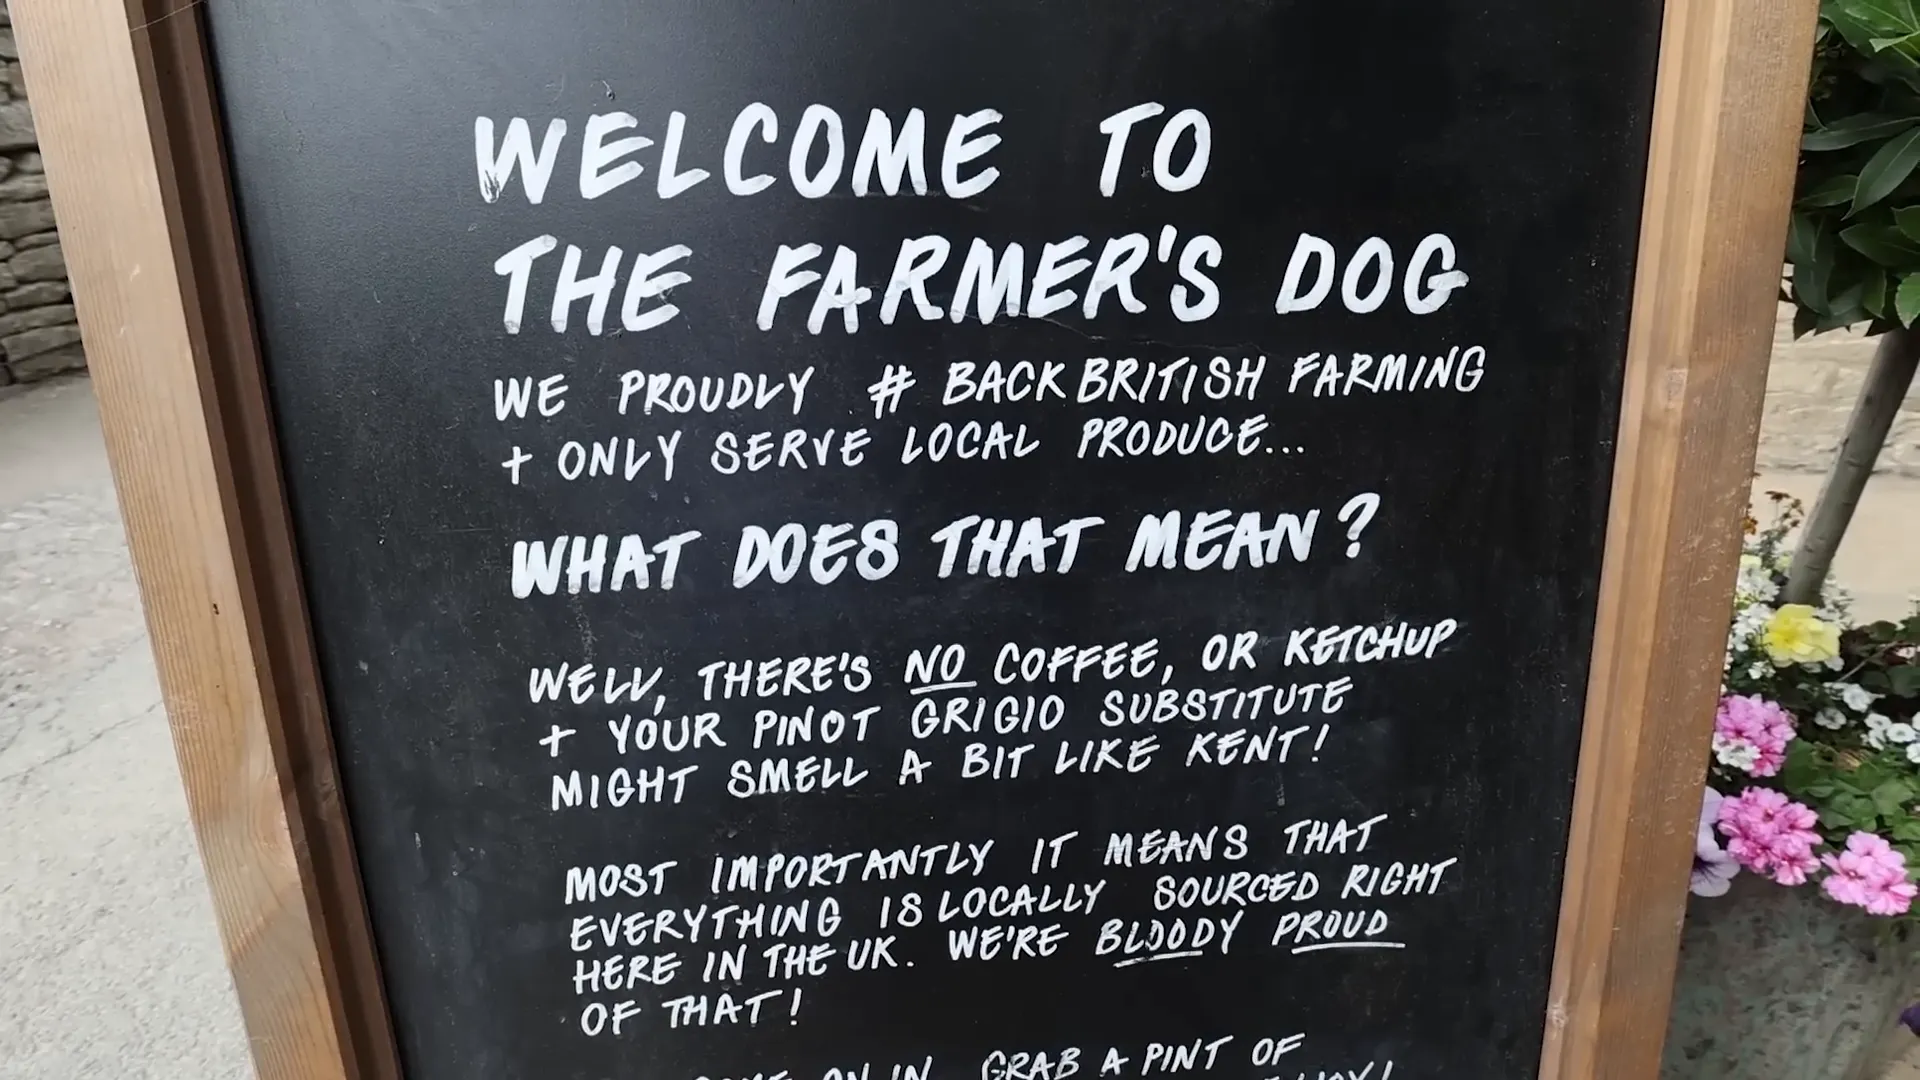 WELCOME TO
THE FARMER'S DOG
WE PROUDLY # BACK BRITISH FARMING
+ ONLY SERVE LOCAL PRODUCE...
WHAT DOES THAT MEAN?
WELL, THERE'S NO COFFEE, OR KETCHUP
+ YOUR PINOT GRIGIO SUBSTITUTE
MIGHT SMELL A BIT LIKE KENT!
MOST IMPORTANTLY IT MEANS THAT
EVERYTHING IS LOCALLY SOURCED RIGHT
HERE IN THE UK. WE'RE BLOODY PROUD
OF THAT!
ON IN, GRAB A PINT OF